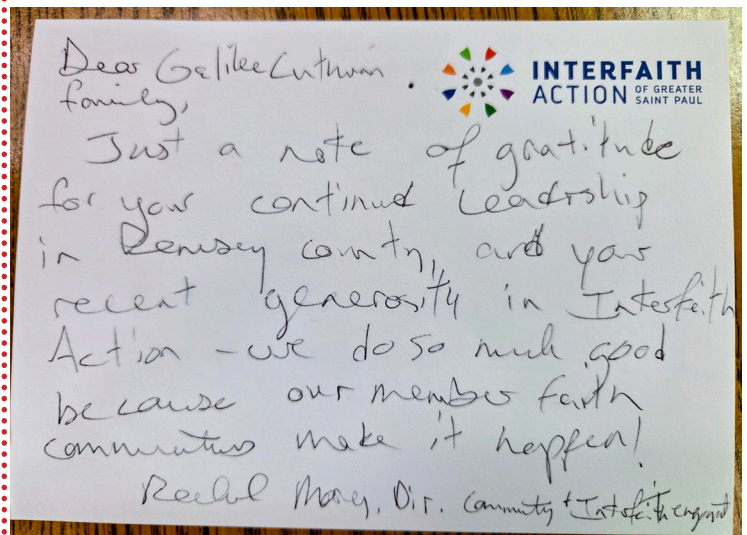 Dear Galilee Lutheran
family,
INTERFAITH
ACTION OF GREATER
SAINT PAUL
Just a note of gratitude
for your continued leadership
in Ramsey county, and your
recent generosity in Interfaith
Action - we do so much good
because our member faith
communities make it happen!
Dir. Community + Interfaith engagement